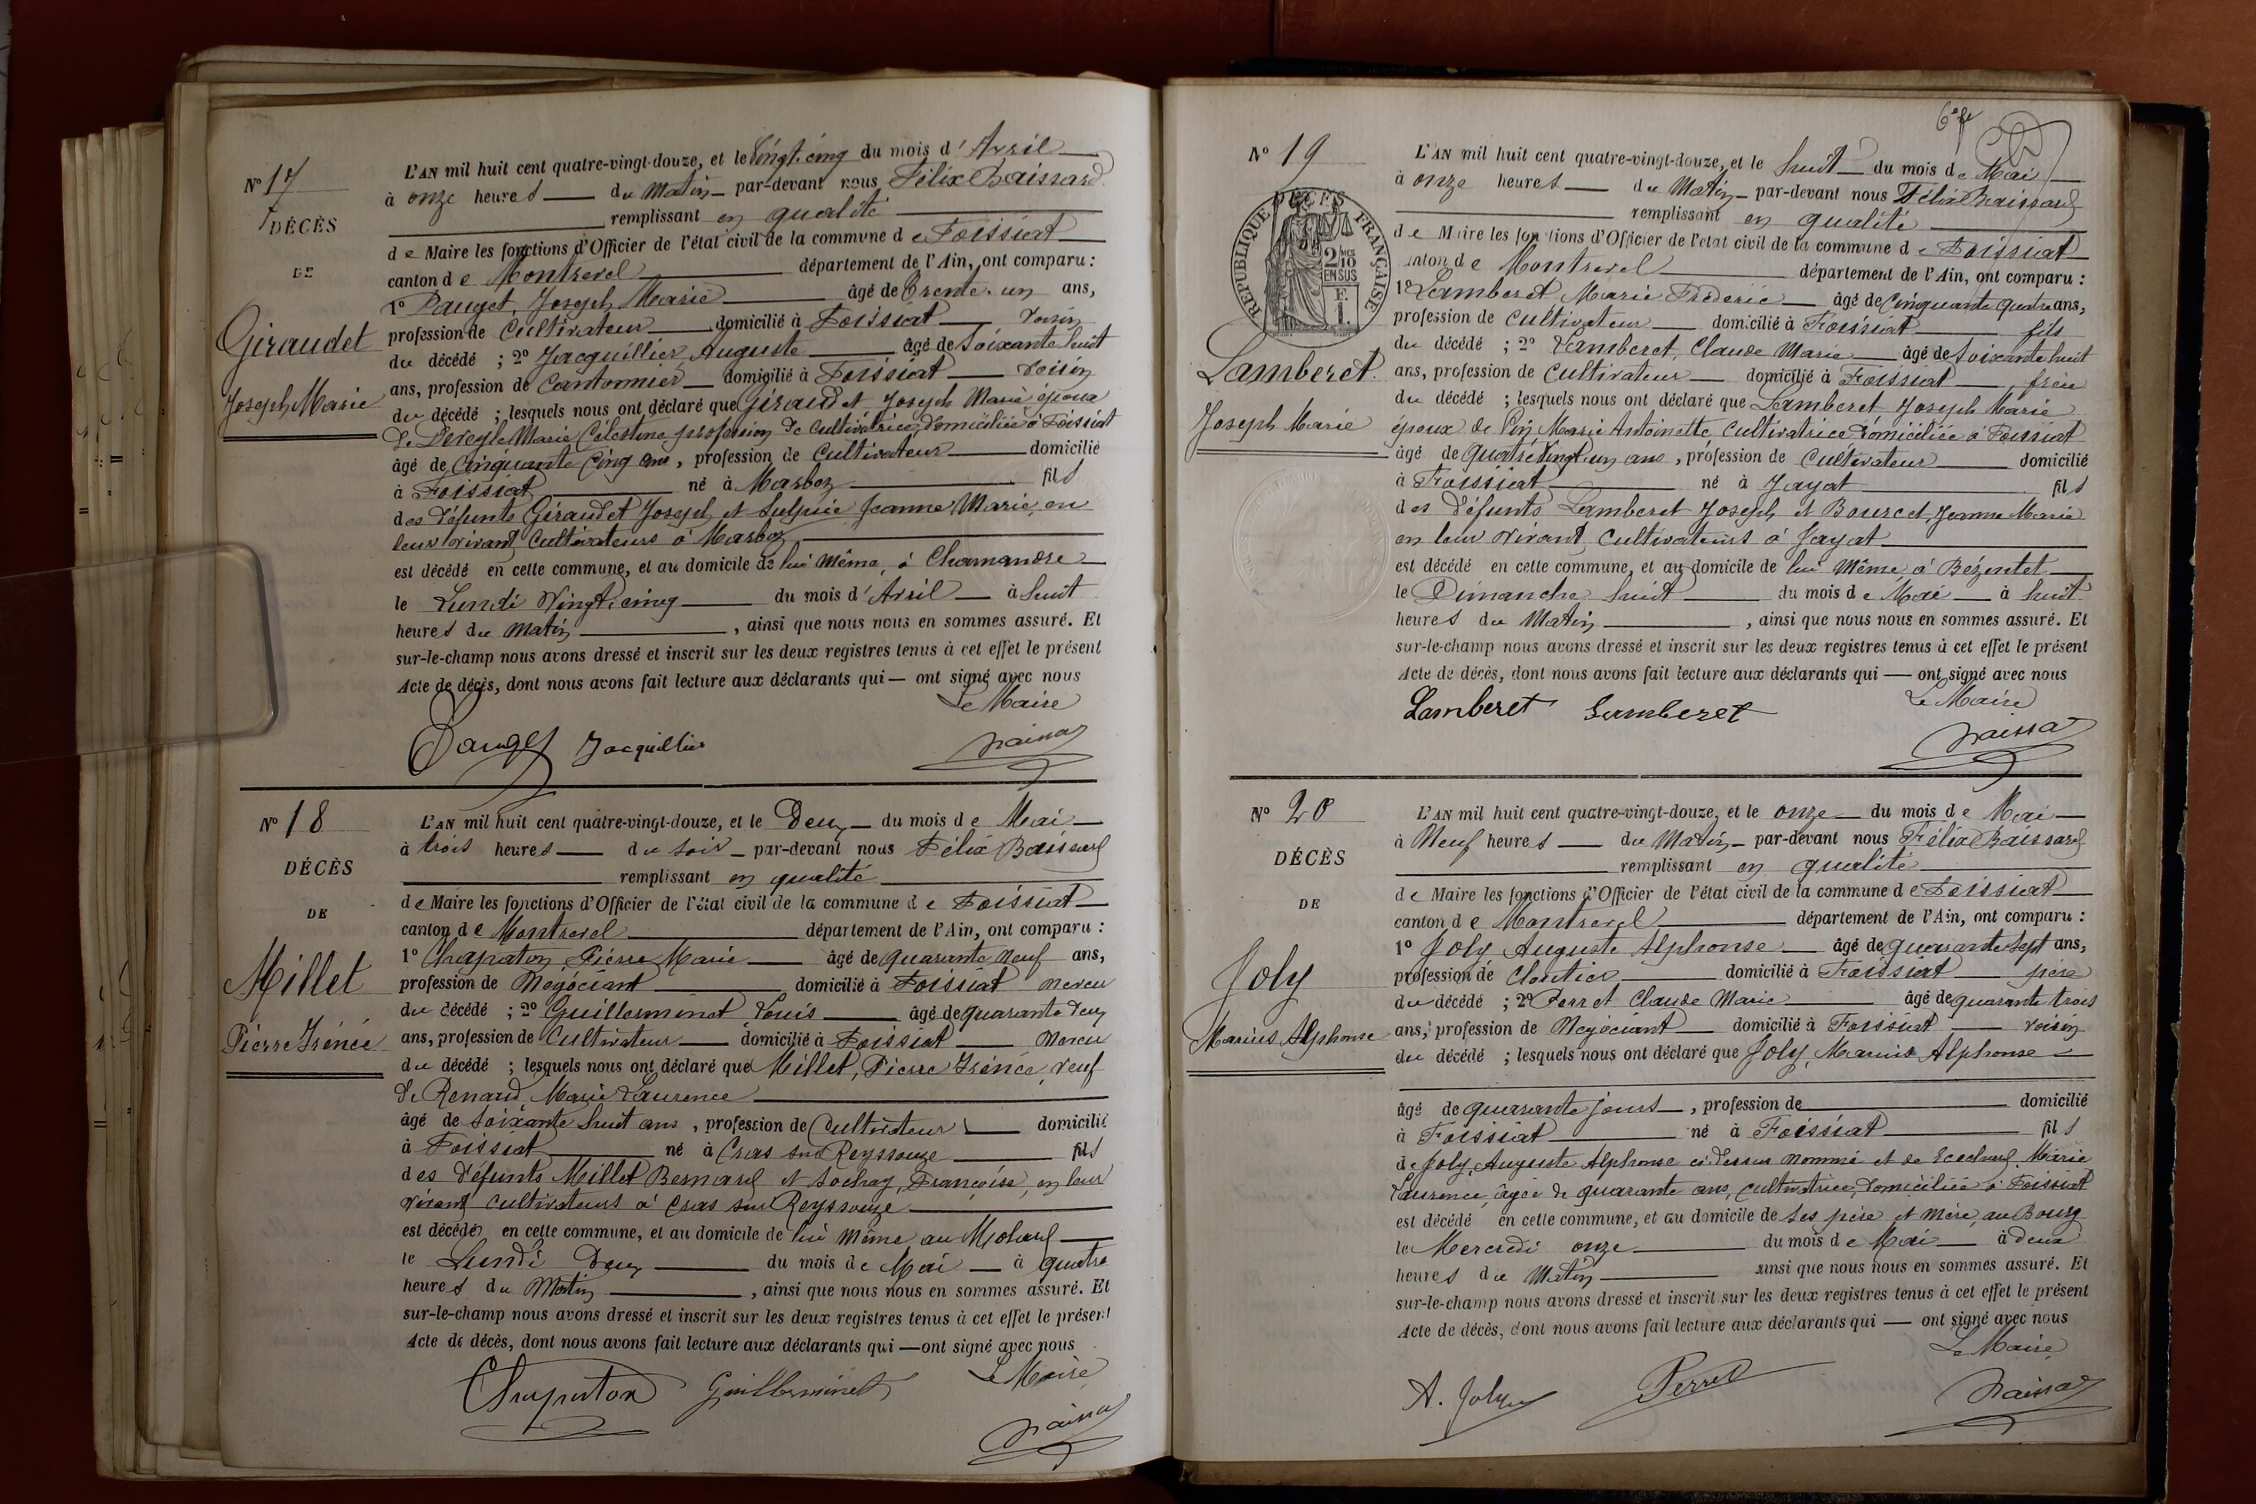 Nº 17
DÉCÈS
DE
Giraudet
Joseph Marie
L'AN mil huit cent quatre-vingt-douze, et le Vingt-cinq du mois d'Avril
à onze heures du Matin par-devant nous Félix Baissard
remplissant en qualité
de Maire les fonctions d'Officier de l'état civil de la commune de Foissiat
canton de Montrevel département de l'Ain, ont comparu :
1º Pauget, Joseph Marie âgé de Trente-un ans,
profession de Cultivateur domicilié à Foissiat voisin
du décédé ; 2º Jacquillier Auguste âgé de Soixante huit
ans, profession de Cantonnier domicilié à Foissiat voisin
du décédé ; lesquels nous ont déclaré que Giraudet Joseph Marie époux
de Marie Célestine profession de cultivatrice, domiciliée à Foissiat
âgé de Cinquante Cinq ans, profession de Cultivateur domicilié
à Foissiat né à Marboz fils
des défunts Giraudet Joseph et Sulpice Jeanne Marie, en
leur vivant Cultivateurs à Marboz
est décédé en cette commune, et au domicile de lui même, à Chamandre
le Lundi Vingt-cinq du mois d'Avril à huit
heures du Matin, ainsi que nous nous en sommes assuré. Et
sur-le-champ nous avons dressé et inscrit sur les deux registres tenus à cet effet le présent
Acte de décès, dont nous avons fait lecture aux déclarants qui — ont signé avec nous
Le Maire
Pauget Jacquillier Baissard
Nº 18
DÉCÈS
DE
Millet
Pierre Irénée
L'AN mil huit cent quatre-vingt-douze, et le Deux du mois de Mai
à trois heures du soir par-devant nous Félix Baissard
remplissant en qualité
de Maire les fonctions d'Officier de l'état civil de la commune de Foissiat
canton de Montrevel département de l'Ain, ont comparu :
1º Chapraton, Pierre Marie âgé de quarante neuf ans,
profession de Négociant domicilié à Foissiat neveu
du décédé ; 2º Guillerminet Louis âgé de quarante deux
ans, profession de Cultivateur domicilié à Foissiat neveu
du décédé ; lesquels nous ont déclaré que Millet, Pierre Irénée, veuf
de Renaud, Marie Laurence
âgé de soixante huit ans, profession de Cultivateur domicilié
à Foissiat né à Cras sur Reyssouze fils
des défunts Millet Bernard et Sochay, Françoise, en leur
vivant cultivateurs à Cras sur Reyssouze
est décédé en cette commune, et au domicile de lui même au Molard
le Lundi Deux du mois de Mai à quatre
heures du Matin, ainsi que nous nous en sommes assuré. Et
sur-le-champ nous avons dressé et inscrit sur les deux registres tenus à cet effet le présent
Acte de décès, dont nous avons fait lecture aux déclarants qui — ont signé avec nous
Le Maire
Chapraton Guillerminet Baissard
Nº 19
DÉCÈS
RÉPUBLIQUE FRANÇAISE
2/10 EN SUS
Lamberet
Joseph Marie
L'AN mil huit cent quatre-vingt-douze, et le huit du mois de Mai
à onze heures du Matin par-devant nous Félix Baissard
remplissant en qualité
de Maire les fonctions d'Officier de l'état civil de la commune de Foissiat
canton de Montrevel département de l'Ain, ont comparu :
1º Lamberet Marie Frédéric âgé de Cinquante quatre ans,
profession de Cultivateur domicilié à Foissiat fils
du décédé ; 2º Lamberet, Claude Marie âgé de soixante huit
ans, profession de Cultivateur domicilié à Foissiat, frère
du décédé ; lesquels nous ont déclaré que Lamberet Joseph Marie
époux de Pin Marie Antoinette, Cultivatrice domiciliée à Foissiat
âgé de quatre vingt un ans, profession de Cultivateur domicilié
à Foissiat né à Jayat fils
des défunts Lamberet Joseph et Bourcet, Jeanne Marie
en leur vivant cultivateurs à Jayat
est décédé en cette commune, et au domicile de lui même à Bézentet
le Dimanche huit du mois de Mai à huit
heures du Matin, ainsi que nous nous en sommes assuré. Et
sur-le-champ nous avons dressé et inscrit sur les deux registres tenus à cet effet le présent
Acte de décès, dont nous avons fait lecture aux déclarants qui — ont signé avec nous
Le Maire
Lamberet Lamberet Baissard
Nº 20
DÉCÈS
DE
Joly
Marius Alphonse
L'AN mil huit cent quatre-vingt-douze, et le onze du mois de Mai
à Neuf heures du Matin par-devant nous Félix Baissard
remplissant en qualité
de Maire les fonctions d'Officier de l'état civil de la commune de Foissiat
canton de Montrevel département de l'Ain, ont comparu :
1º Joly Auguste Alphonse âgé de quarante sept ans,
profession de Cloutier domicilié à Foissiat père
du décédé ; 2º Perret Claude Marie âgé de quarante trois
ans, profession de Négociant domicilié à Foissiat voisin
du décédé ; lesquels nous ont déclaré que Joly, Marius Alphonse
âgé de quarante jours, profession de domicilié
à Foissiat né à Foissiat fils
de Joly, Auguste Alphonse ci-dessus nommé et de Marie
Laurence, âgée de quarante ans, cultivatrice, domiciliée à Foissiat
est décédé en cette commune, et au domicile de ses père et mère, au Bourg
le Mercredi onze du mois de Mai à deux
heures du Matin ainsi que nous nous en sommes assuré. Et
sur-le-champ nous avons dressé et inscrit sur les deux registres tenus à cet effet le présent
Acte de décès, dont nous avons fait lecture aux déclarants qui — ont signé avec nous
Le Maire
A. Joly Perret Baissard